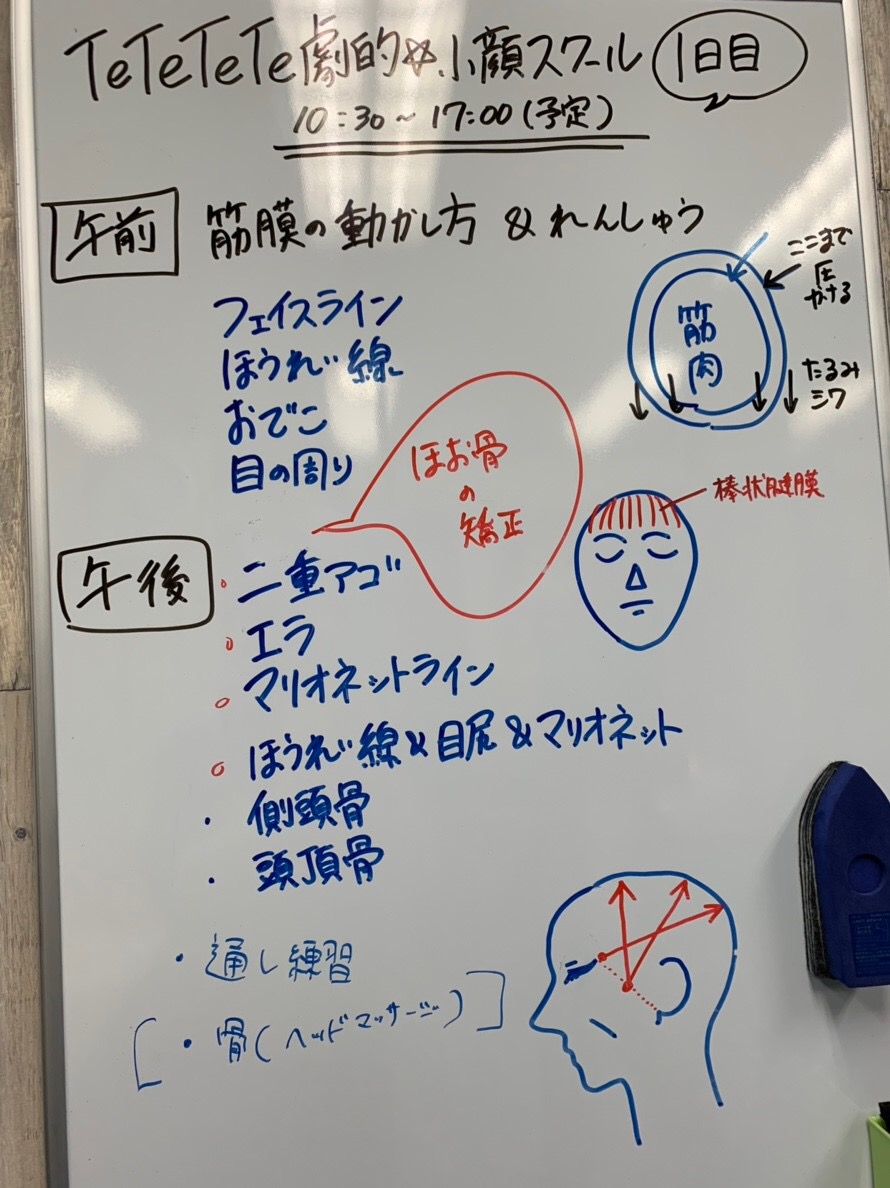 TeTeTeTe劇的☆小顔スクール 1日目
10:30~17:00(予定)
午前 筋膜の動かし方&れんしゅう
フェイスライン
ほうれい線
おでこ
目の周り
筋肉
ここまで
圧
かける
たるみ
シワ
ほお骨
の
矯正
棒状腱膜
午後
二重アゴ
エラ
マリオネットライン
ほうれい線&目尻&マリオネット
・側頭骨
・頭頂骨
・通し練習
[・骨(ヘッドマッサージ)]